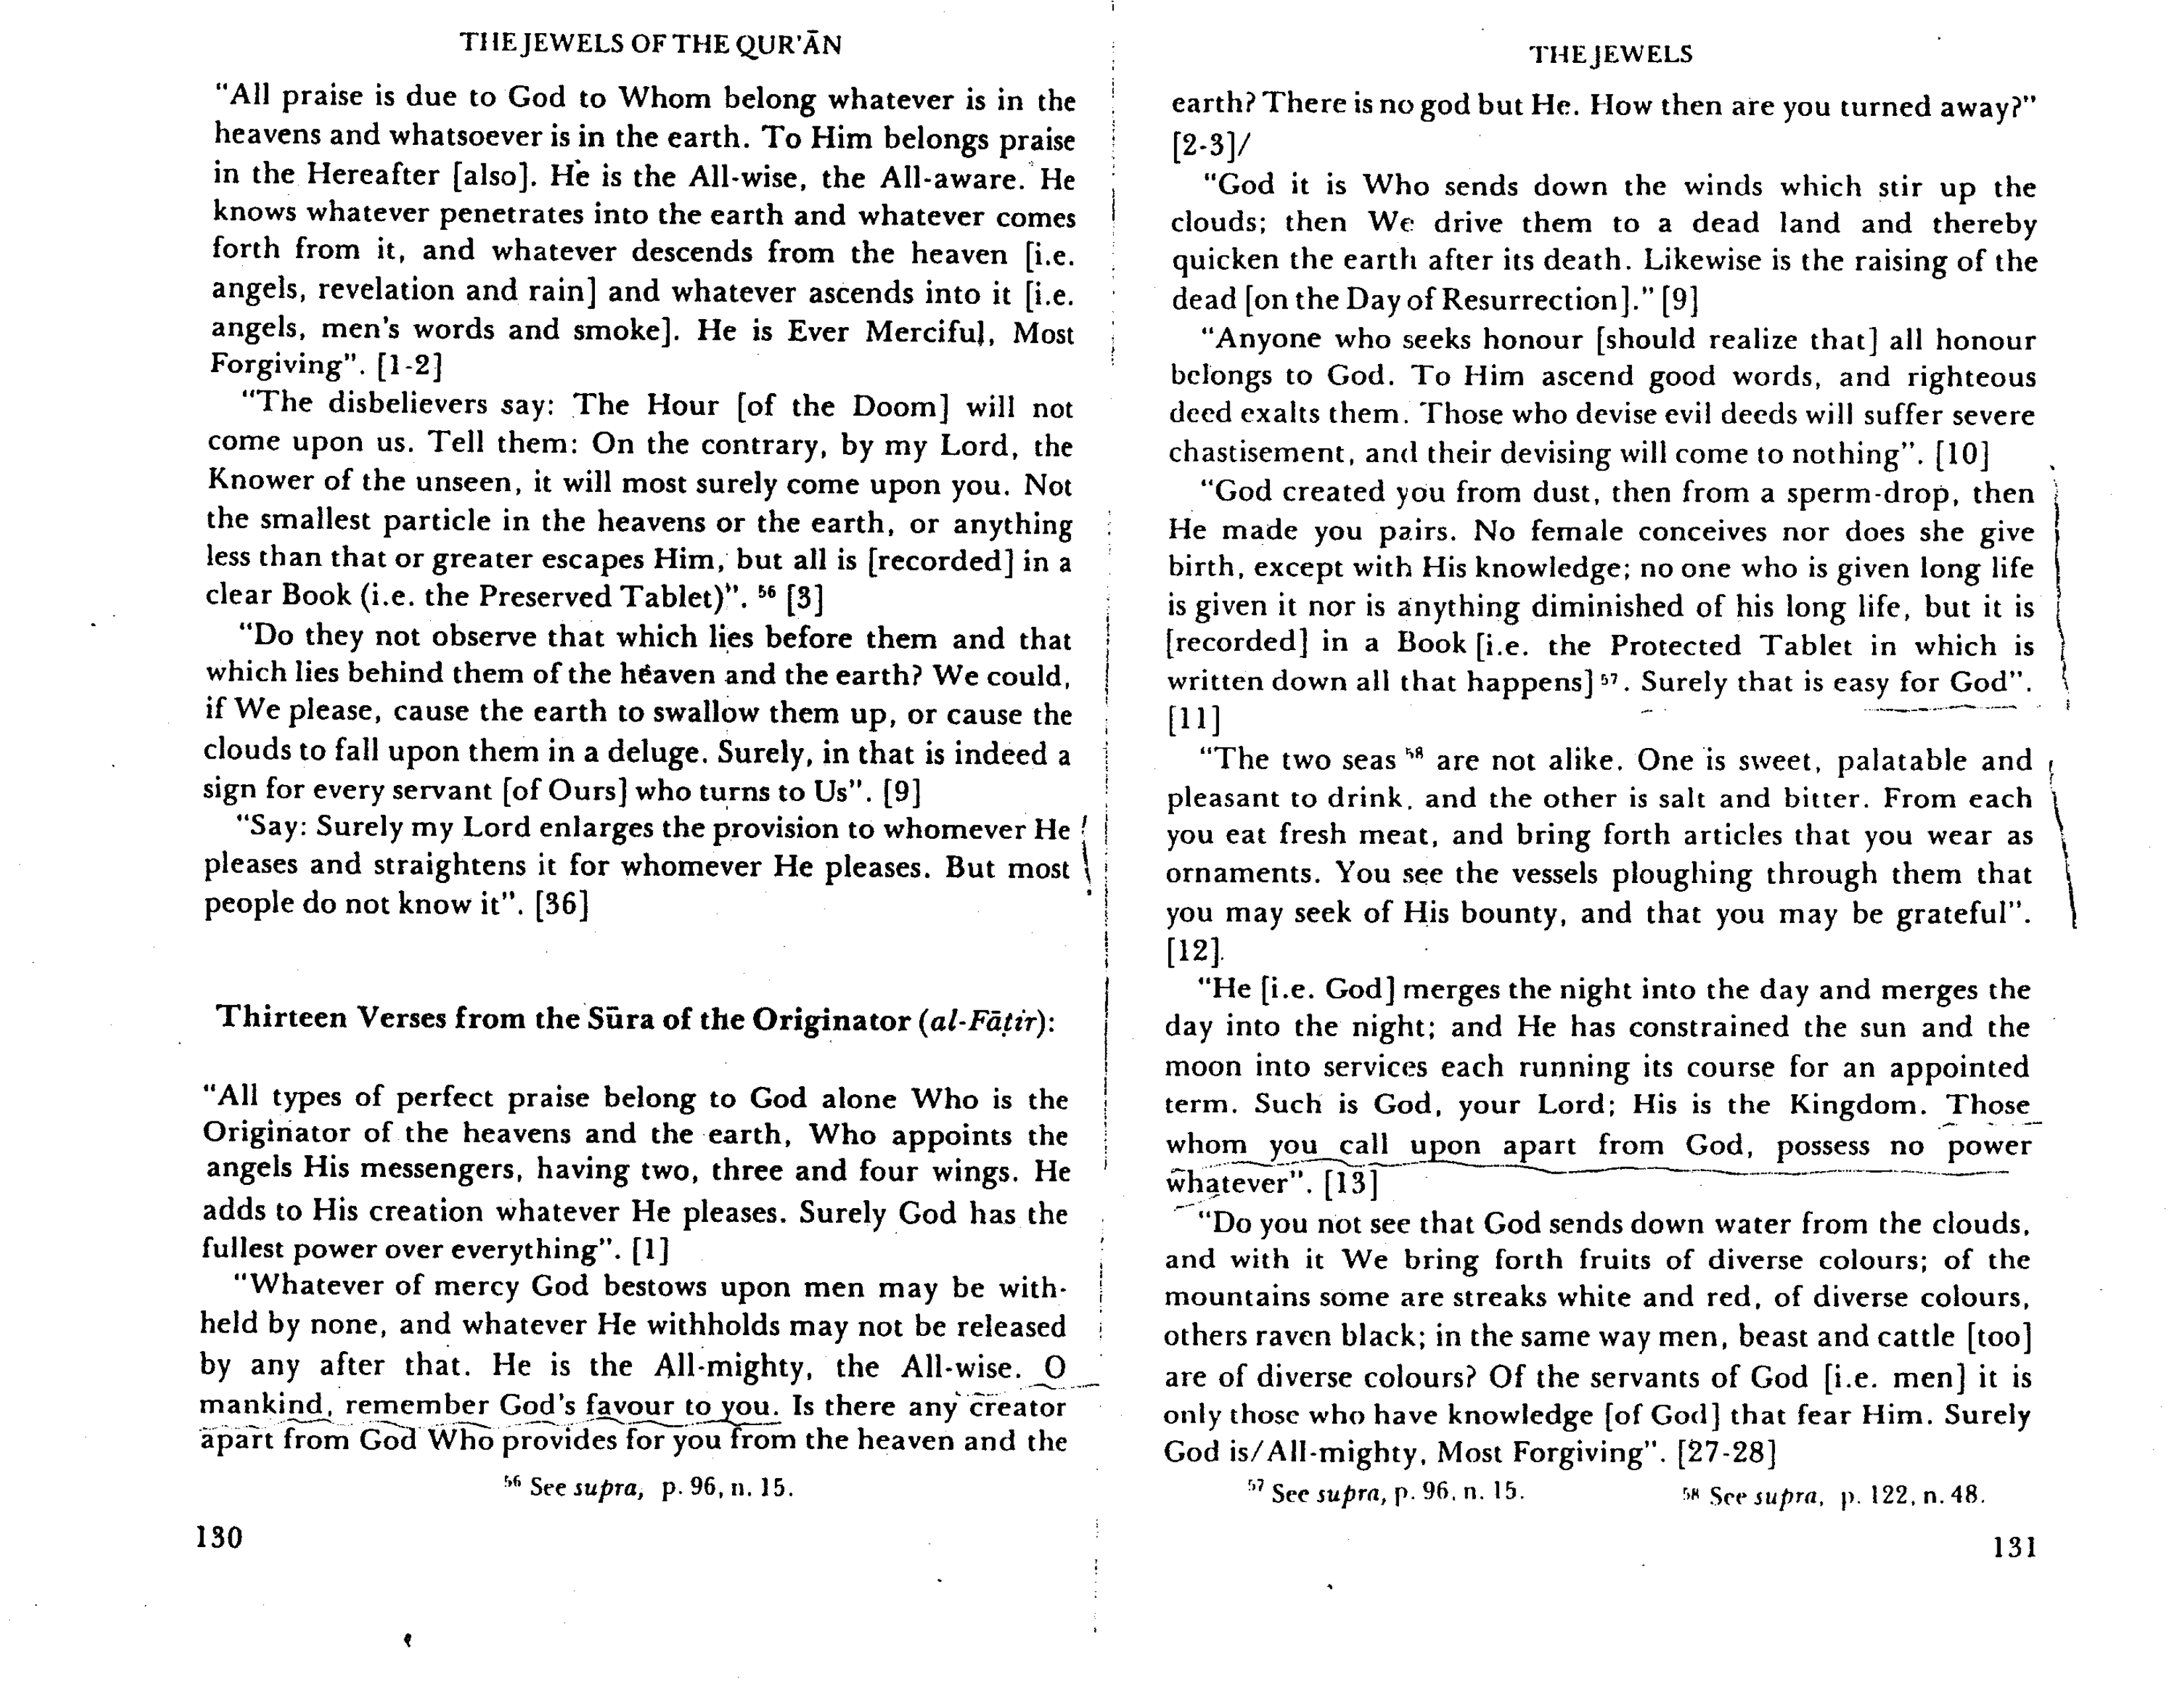 THE JEWELS OF THE QUR'ĀN
"All praise is due to God to Whom belong whatever is in the
heavens and whatsoever is in the earth. To Him belongs praise
in the Hereafter [also]. He is the All-wise, the All-aware. He
knows whatever penetrates into the earth and whatever comes
forth from it, and whatever descends from the heaven [i.e.
angels, revelation and rain] and whatever ascends into it [i.e.
angels, men's words and smoke]. He is Ever Merciful, Most
Forgiving". [1-2]
"The disbelievers say: The Hour [of the Doom] will not
come upon us. Tell them: On the contrary, by my Lord, the
Knower of the unseen, it will most surely come upon you. Not
the smallest particle in the heavens or the earth, or anything
less than that or greater escapes Him, but all is [recorded] in a
clear Book (i.e. the Preserved Tablet)". 56 [3]
"Do they not observe that which lies before them and that
which lies behind them of the heaven and the earth? We could,
if We please, cause the earth to swallow them up, or cause the
clouds to fall upon them in a deluge. Surely, in that is indeed a
sign for every servant [of Ours] who turns to Us". [9]
"Say: Surely my Lord enlarges the provision to whomever He
pleases and straightens it for whomever He pleases. But most
people do not know it". [36]
Thirteen Verses from the Sūra of the Originator (al-Fāṭir):
"All types of perfect praise belong to God alone Who is the
Originator of the heavens and the earth, Who appoints the
angels His messengers, having two, three and four wings. He
adds to His creation whatever He pleases. Surely God has the
fullest power over everything". [1]
"Whatever of mercy God bestows upon men may be with-
held by none, and whatever He withholds may not be released
by any after that. He is the All-mighty, the All-wise. O
mankind, remember God's favour to you. Is there any creator
apart from God Who provides for you from the heaven and the
56 See supra, p. 96, n. 15.
130
THE JEWELS
earth? There is no god but He. How then are you turned away?"
[2-3]/
"God it is Who sends down the winds which stir up the
clouds; then We drive them to a dead land and thereby
quicken the earth after its death. Likewise is the raising of the
dead [on the Day of Resurrection]." [9]
"Anyone who seeks honour [should realize that] all honour
belongs to God. To Him ascend good words, and righteous
deed exalts them. Those who devise evil deeds will suffer severe
chastisement, and their devising will come to nothing". [10]
"God created you from dust, then from a sperm-drop, then
He made you pairs. No female conceives nor does she give
birth, except with His knowledge; no one who is given long life
is given it nor is anything diminished of his long life, but it is
[recorded] in a Book [i.e. the Protected Tablet in which is
written down all that happens] 57. Surely that is easy for God".
[11]
"The two seas 58 are not alike. One is sweet, palatable and
pleasant to drink, and the other is salt and bitter. From each
you eat fresh meat, and bring forth articles that you wear as
ornaments. You see the vessels ploughing through them that
you may seek of His bounty, and that you may be grateful".
[12].
"He [i.e. God] merges the night into the day and merges the
day into the night; and He has constrained the sun and the
moon into services each running its course for an appointed
term. Such is God, your Lord; His is the Kingdom. Those
whom you call upon apart from God, possess no power
whatever". [13]
"Do you not see that God sends down water from the clouds,
and with it We bring forth fruits of diverse colours; of the
mountains some are streaks white and red, of diverse colours,
others raven black; in the same way men, beast and cattle [too]
are of diverse colours? Of the servants of God [i.e. men] it is
only those who have knowledge [of God] that fear Him. Surely
God is/All-mighty, Most Forgiving". [27-28]
57 See supra, p. 96, n. 15. 58 See supra, p. 122, n. 48.
131